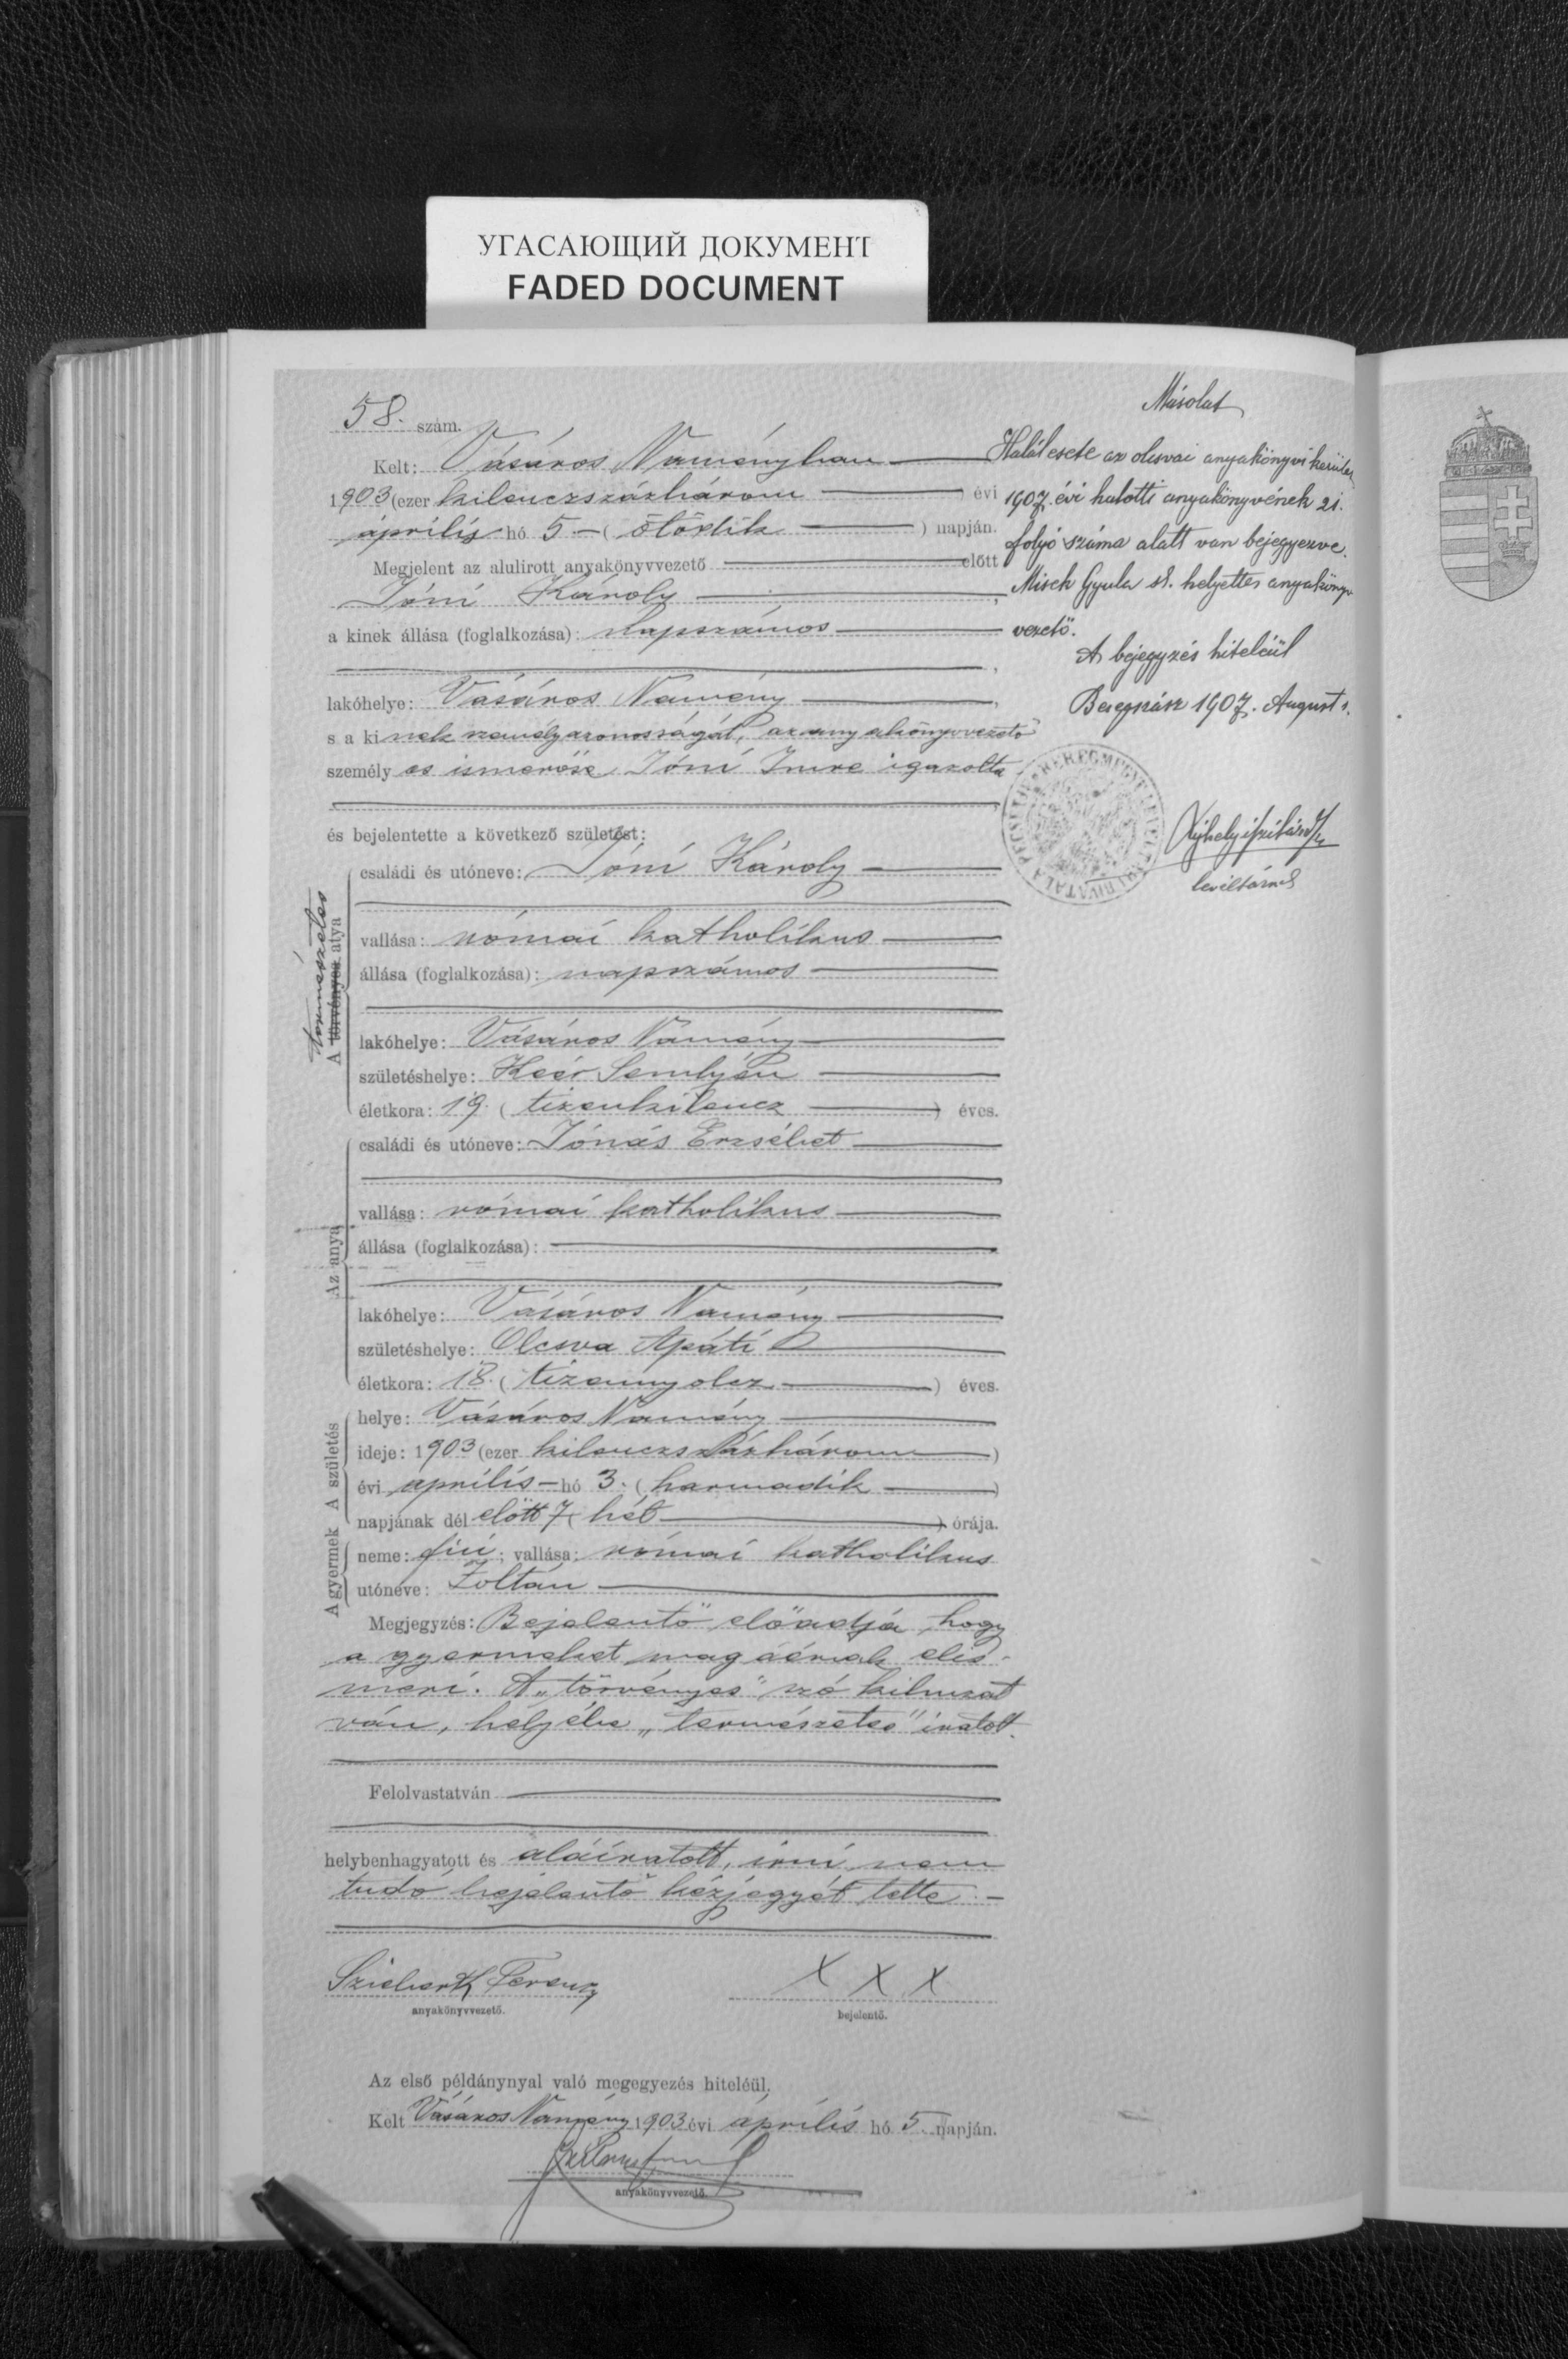 УГАСАЮЩИЙ ДОКУМЕНТ
FADED DOCUMENT
58. szám.
Kelt: Vásáros Naményban
1903 (ezer kilenczszázhárom ) évi
április hó 5 — ( ötödik ) napján.
Megjelent az alulirott anyakönyvvezető előtt
Jóni Károly
a kinek állása (foglalkozása): napszámos
lakóhelye: Vásáros Namény
s a kinek személyazonosságát, az anyakönyvvezető
személyes ismerőse, Jóni Imre igazolta
és bejelentette a következő születést:
természetes
A törvényes atya
családi és utóneve: Jóni Károly
vallása: római katholikus
állása (foglalkozása): napszámos
lakóhelye: Vásáros Namény
születéshelye: Keér Semlyén
életkora: 19. ( tizenkilencz ) éves.
Az anya
családi és utóneve: Jónás Erzsébet
vallása: római katholikus
állása (foglalkozása):
lakóhelye: Vásáros Namény
születéshelye: Olcsva Apáti
életkora: 18. ( tizennyolcz ) éves.
A születés
helye: Vásáros Namény
ideje: 1903 (ezer kilenczszázhárom )
évi április — hó 3. ( harmadik )
napjának dél előtt 7 ( hét ) órája.
A gyermek
neme: fiú; vallása: római katholikus
utóneve: Zoltán
Megjegyzés: Bejelentő előadja, hogy
a gyermeket magáénak elis-
meri. A „törvényes" szó kihuzat
ván, helyébe „természetes" iratott.
Felolvastatván
helybenhagyatott és aláíratott, irni nem
tudó bejelentő kézjegyét tette. —
Ferencz X X X
anyakönyvvezető. bejelentő.
Az első példánynyal való megegyezés hiteléül.
Kelt Vásáros Namény 1903 évi április hó 5. napján.
anyakönyvvezető.
Másolat
Halálesete az olcsvai anyakönyvi kerület
1907. évi halotti anyakönyvének 21.
folyó száma alatt van bejegyezve.
Misek Gyula sk. helyettes anyakönyv
vezető.
A bejegyzés hiteléül
Beregszász 1907. August 1.
levéltárnok